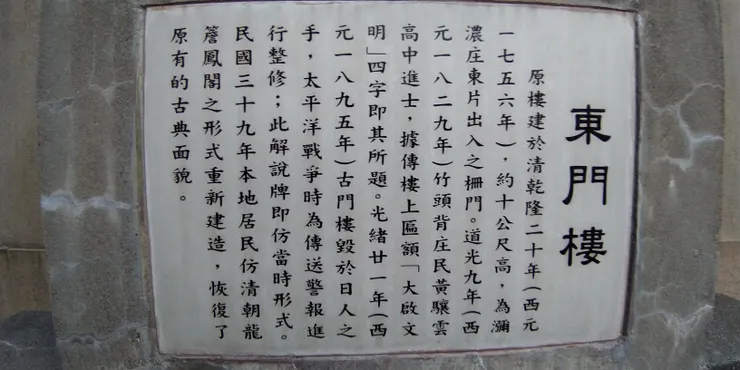 東門樓
原樓建於清乾隆二十年(西元
一七五六年),約十公尺高,為瀰
濃庄東片出入之柵門。道光九年(西
元一八二九年)竹頭背庄民黃驤雲
高中進士,據傳樓上匾額「大啟文
明」四字即其所題。光緒廿一年(西
元一八九五年)古門樓毀於日人之
手,太平洋戰爭時為傳送警報進
行整修;此解說牌即仿當時形式。
民國三十九年本地居民仿清朝龍
簷鳳閣之形式重新建造,恢復了
原有的古典面貌。